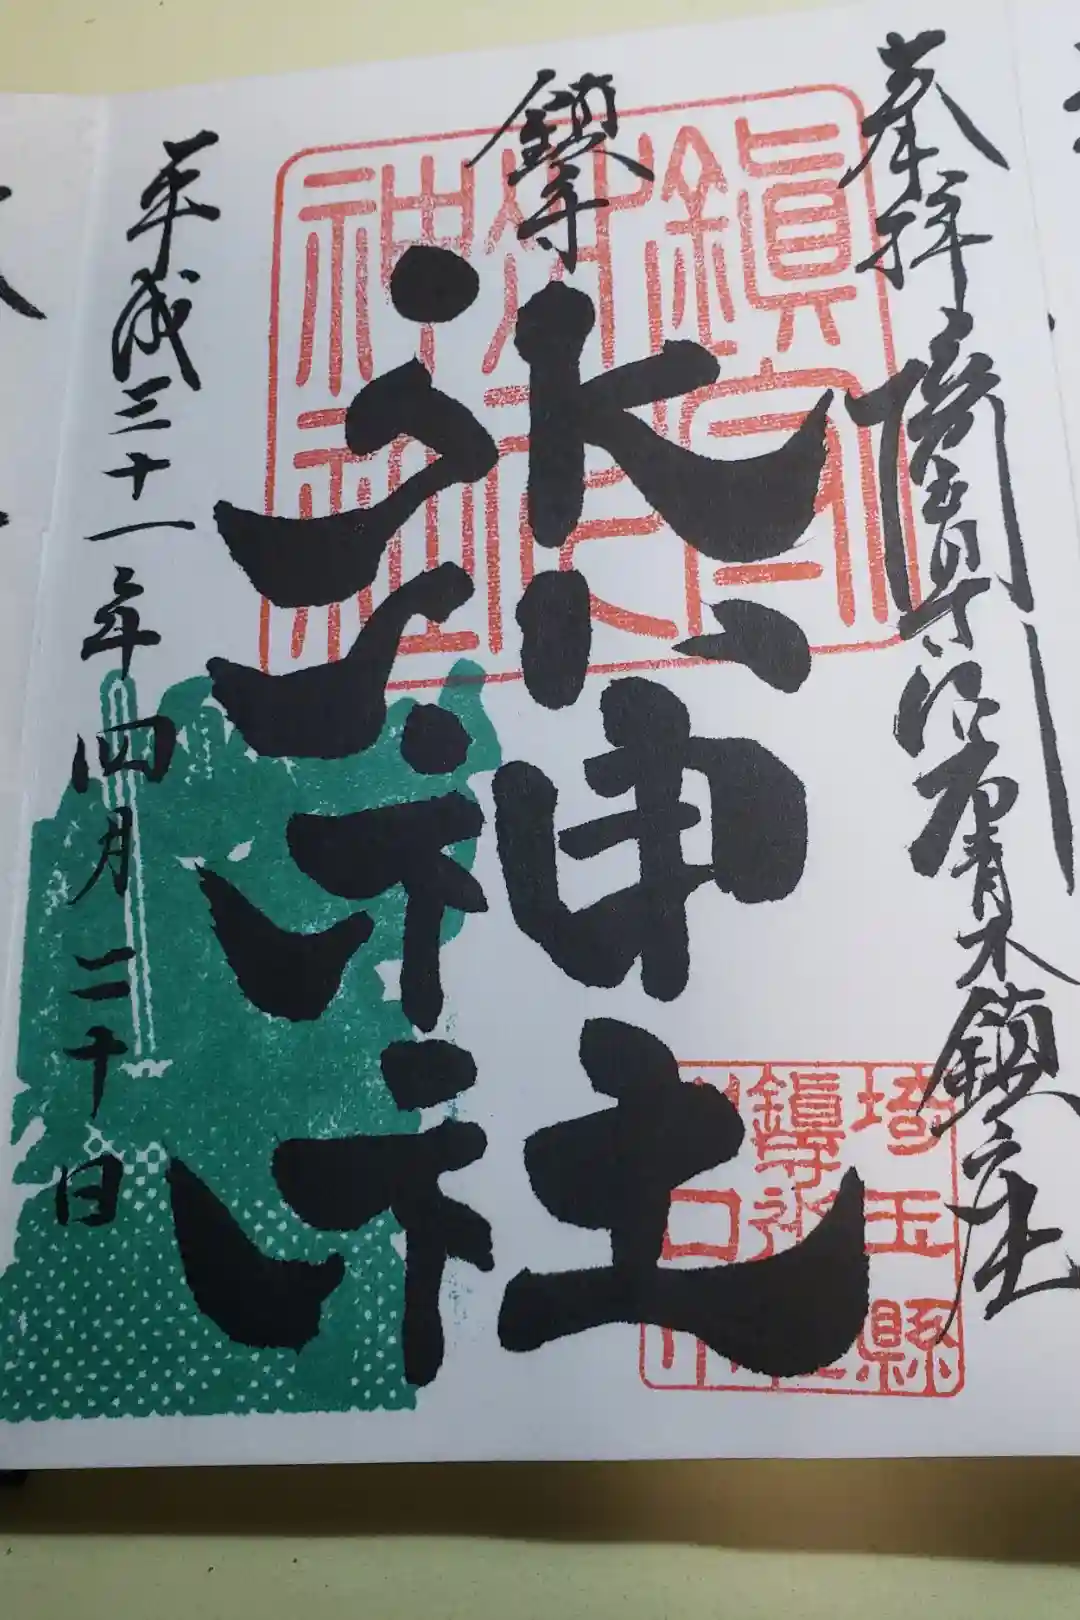 奉拝 埼玉県川口市青木鎮座
鎮守
氷川神社
平成三十一年四月二十日
鎮守
氷川
神社
埼玉縣
鎮守氷川神社
川口市